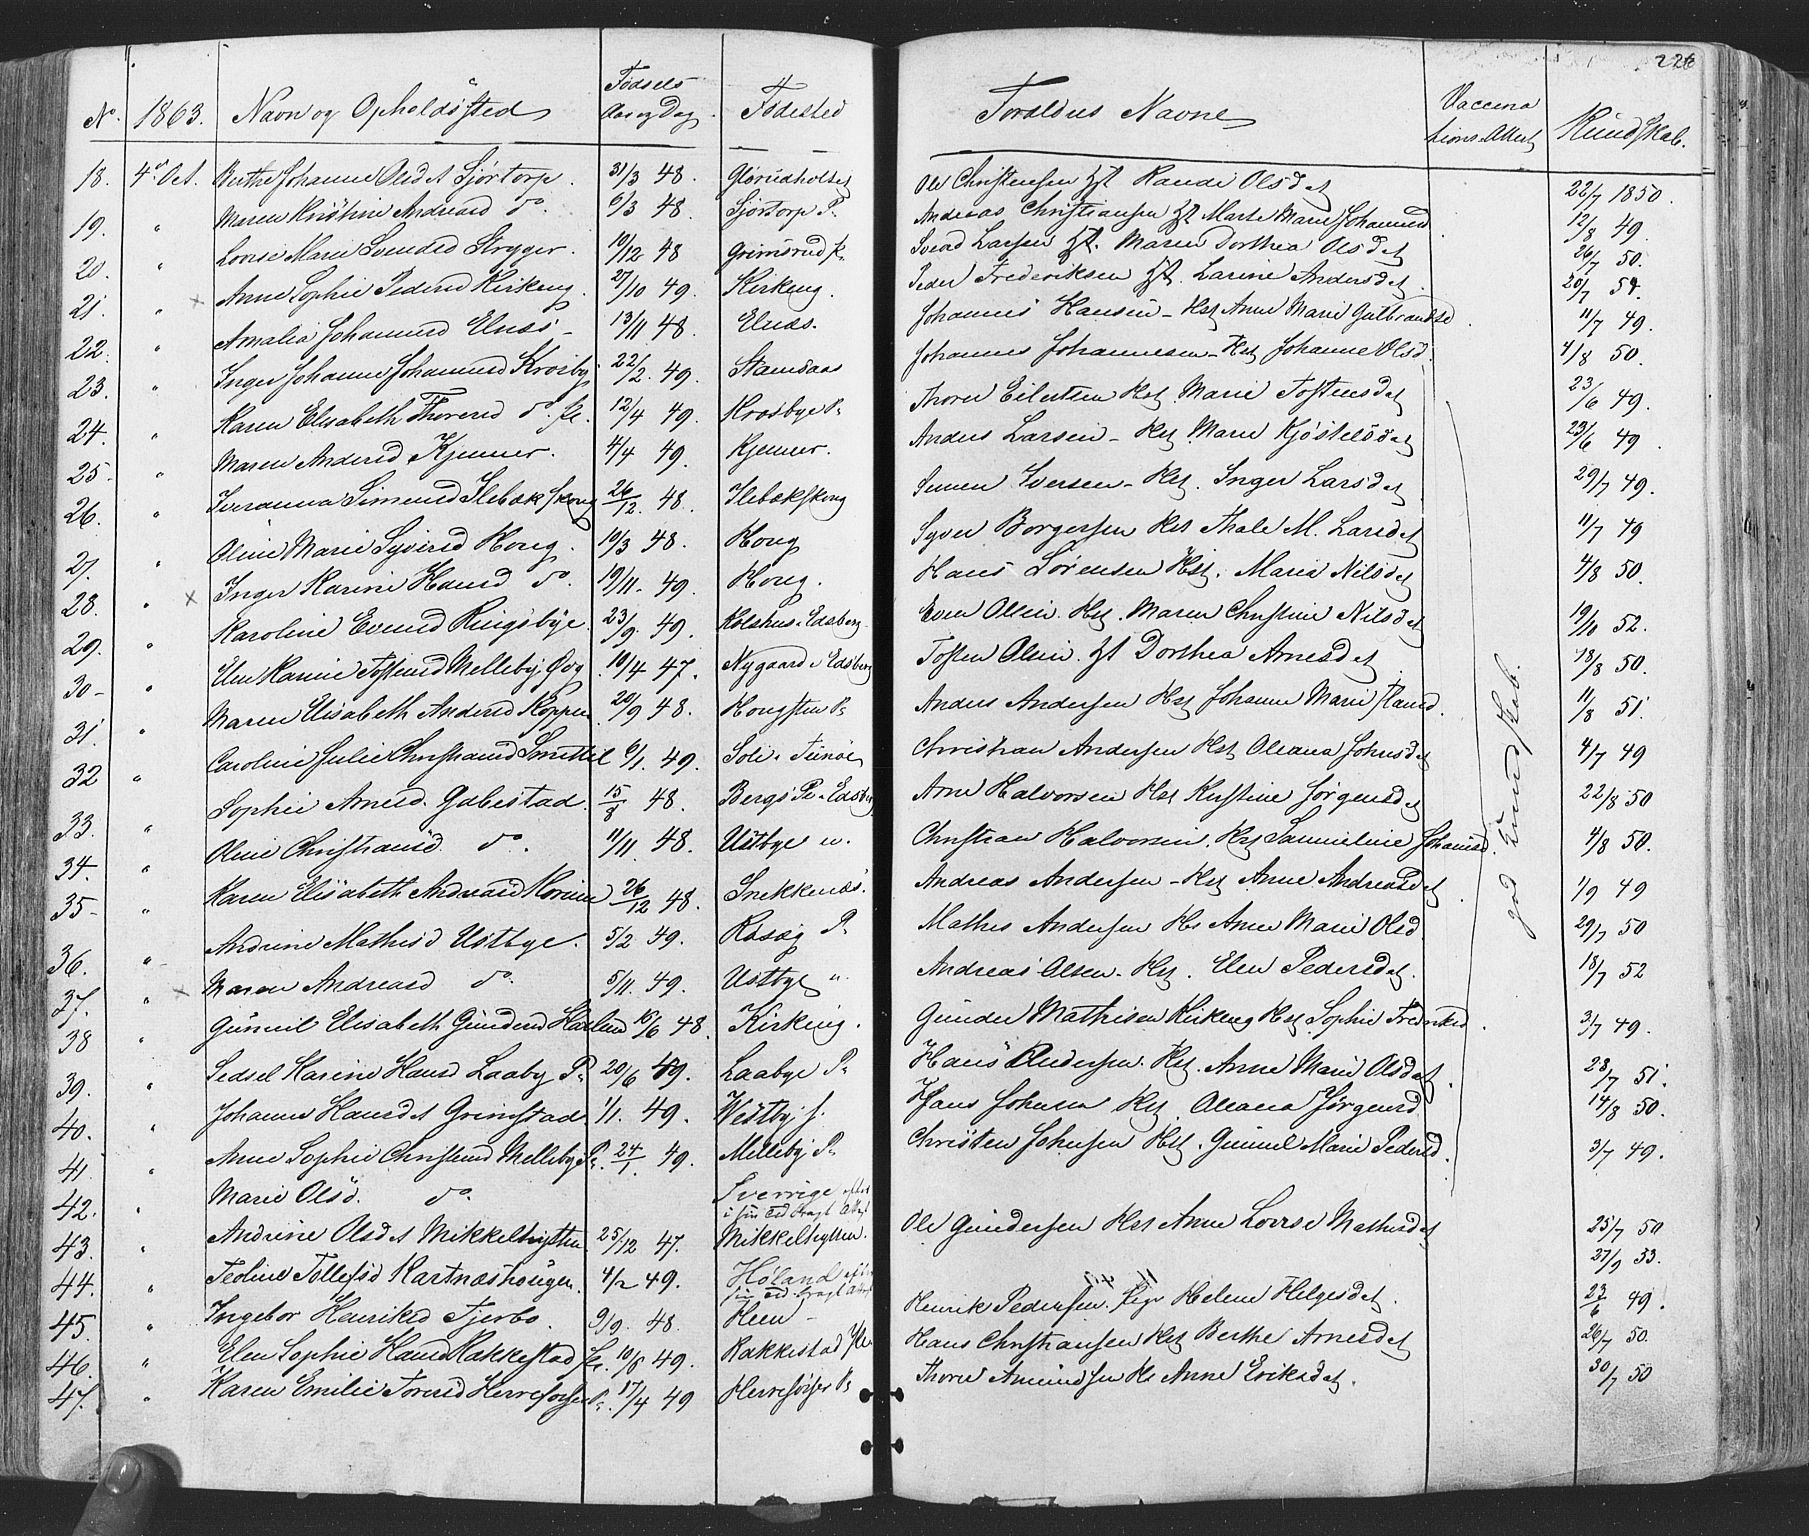 226
No. 1863. Navn og Opholdssted Fødsels Aar og Dag. Fødested Forældres Navne Vaccinations-Attest Kundskab.
18. 4de Oct. Berthe Johanne Olsdet Sjørtorp. 31/3 48. Glørudholtet Ole Christensen Hst Rande Olsdet 22/7 1850.
19. " Maren Kristine Andreasd do. 6/3 48. Sjørtorp P. Andreas Christiansen Hst Marte Marie Johannesd 12/8 49.
20. " Lovise Marie Svendsd Strygger. 19/12 48 Grimsrud P. Svend Larsen Hst. Maren Dorthea Olsdet 26/7 50.
21. " Anne Sophie Pedersd Kirkeng. 27/10 49. Kirkeng. Peder Frederiksen Hst. Larine Andersdet. 20/7 54.
22. " Amalia Johannesd Elnæs - 13/11 48. Elnæs. Johannes Hansen - Hst Anne Marie Gulbrandsd. 11/7 49.
23. " Inger Johanne Johannesd Krosby 22/2. 49. Stamdaas Johannes Johannesen - Hst Johanne Olsd. 4/8 50.
24. " Karen Elisabeth Thoresd do. Pe. 12/4 49. Krosbye P. Thore Eilertsen Hst. Marie Tostensdet 23/6 49.
25. " Maren Andersd Kjenner. 4/4 49. Kjenner. Anders Larsen - Hst Marie Kjøstelsdet 23/6 49.
26. " Simensd Ilebækskoug 26/12. 48. Ilebækskoug Simen Iversen - Hst. Inger Larsdet 29/7 49.
27. " Oline Marie Syversd Houg. 19/3 48. Houg Syver Borgersen Hst Thale M. Larsdet 11/7 49
28. " Inger Karine Hansd do. 19/11. 49. Houg. Hans Sørensen Hst. Maria Nilsdet 4/8 50.
29. " Karoline Evensd Ringsbye. 23/9. 49. Kolshus i Edsberg. Even Olsen. Hst. Maren Christine Nilsdet 19/10 52.
30 - " Elen Karine Tostensd Melleby Øvg. 10/4 47. Nygaard i Edsberg Tosten Olsen. Hst Dorthea Arnesdet. 18/8 50.
31. " Maren Elisabeth Andersd Koppen. 20/9 48. Hougsten P. Anders Andersen Hst Johanne Marie Hansd. 11/8 51.
32 " Caroline Julie Christiansd Smertil 6/1. 49. Soli i Tunøe Christian Andersen Hst Oleana Johnsdet 4/7 49
33. " Sophie Arnesd. Gabestad. 15/8 48. Bergs Pe i Edsberg Arne Halvorsen Hst Kirstine Jørgensdet 22/8 50
34. " Oline Christiansd. do. 11/11. 48. Ustbye n. Christian Halvorsen. Hst Samueline Johansd. 4/8 50.
35 - " Karen Elisabeth Andreasd 26/12 48. Snekkenæs. Andreas Andersen - Hst Anne Andreasdet. 1/9 49
36. " Andrine Mathisd Ustbye. 5/2 49. P. Mathis Andersen Hs Anne Marie Olsd. 29/7 50
37. " Maren Andreasd do. 5/11. 49. Ustbye " Andreas Olsen. Hst. Elen Pedersdet. 18/7 52
38 " Gunnil Elisabeth Gundersd Haslem 19/6 48. Kirkeng. Gunder Mathisen Kirkeng Hst. Sophie Fredriksd. 3/7 49.
39. " Sedsel Karine Hansd Laaby P. 20/6 49. Laabye P. Hans Andersen. Hst. Anne Marie Olsdet. 28/7 51.
40. " Johanne Hansdet Grimstad 1/1. 49. Westby. Hans Johnsen Hst. Oleana Jørgensd 14/8 50.
41. " Anne Sophie Christensd Melleby P. 24/1 49. Melleby P. Christen Johnsen Hst. Gunnil Marie Pedersd. 3/7 49.
42. " Marie Olsd. do. Sverrige efter i sin Tid bragt Attest
43. " Andrine Olsdet Mikkelhytten 25/12 47. Mikkelhytten. Ole Gundersen Hst Anne Lovise Mathisdet 25/7 50
44. " Teoline Tollefsd Kartnæshougen. 4/2 49. Høland efter sin Tid bragt Attest 27/9 53.
45. " Ingebor Henriksd Fjerbo. 9/9. 48. Heen - Henrik Pedersen. Pige Helene Helgesdet. 23/6 49.
46. " Elen Sophie Hansd Rakkestad Pe. 10/8 49. Rakkestad Hans Christiansen Hst Berthe Arnesdet 26/7 50.
47. " Karen Emilie Toresd Herresørsen P. 17/4 49 Herresørsen P. Thore Amundsen Hs Anne Eriksdet. 30/7 50
god Kundskab.